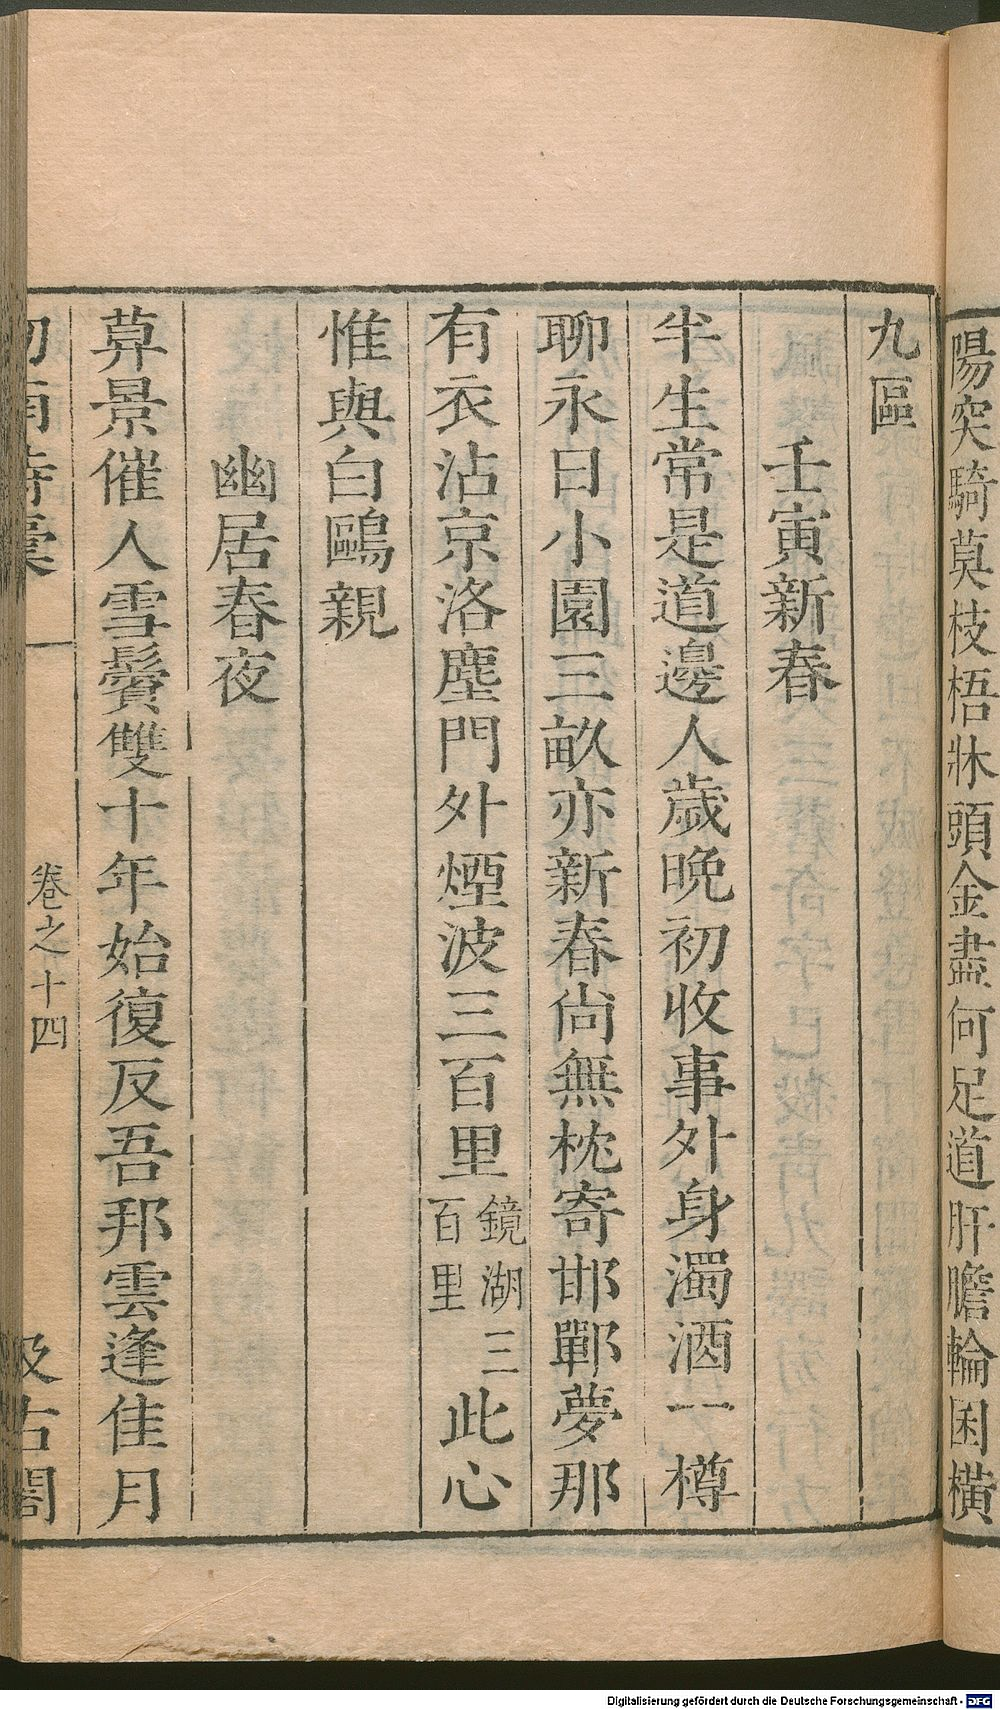 陽突騎莫枝梧牀頭金盡何足道肝膽輪囷橫
九區
壬寅新春
半生常是道邊人歲晚初收事外身濁酒一樽
聊永日小園三畝亦新春尚無枕寄邯鄲夢那
有衣沾京洛塵門外煙波三百里鏡湖三百里此心
惟與白鷗親
幽居春夜
莫景催人雪鬢雙十年始復反吾邦雲逢佳月
卷之十四
汲古閣
Digitalisierung gefördert durch die Deutsche Forschungsgemeinschaft - DFG